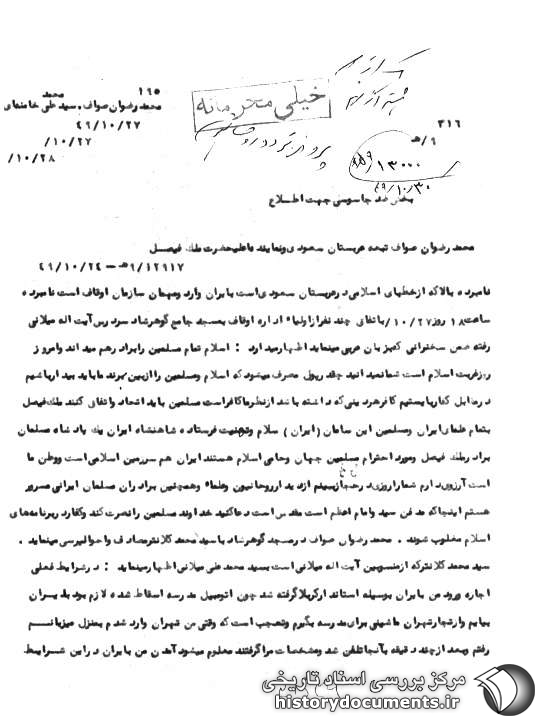 خیلی محرمانه
۱۶۵
محمد
محمد رضوان صواف ـ سید علی خامنه‌ای
۴۹/۱۰/۲۷
/۱۰/۲۷
/۱۰/۲۸
۳۱۶
۹/هـ
۱۳۰۰۰
۴۹/۱۰/۳۰
بخش ضد جاسوسی جهت اطلاع
محمد رضوان صواف تبعه عربستان سعودی و نماینده اعلیحضرت ملک فیصل
۹/۱۲۹۱۷هـ – ۴۹/۱۰/۲۴
نامبرده بالا که از خطبای اسلامی در عربستان سعودی است بایران وارد و مهمان سازمان اوقاف است نامبرده
ساعت ۱۸ روز ۱۰/۲۷/ باتفاق چند نفر از اولیاء اداره اوقاف بمسجد جامع گوهرشاد سر درس آیت اله میلانی
رفته ضمن سخنرانی که بزبان عربی مینماید اظهار میدارد : اسلام تمام مسلمین را برادر هم میداند و امروز
روز غربت اسلام است شما نمیدانید چقدر پول مصرف میشود که اسلام و مسلمین را از بین ببرند ما باید بیدار باشیم
در مقابل کفار بایستیم کافر هر دینی که داشته باشد از نظر ما کافر است مسلمین باید اتحاد و اتفاق کنند ملک فیصل
بتمام علمای ایران و مسلمین این سامان (ایران) سلام و تهنیت فرستاده شاهنشاه ایران یک پادشاه مسلمان
برادر ملک فیصل و مورد احترام مسلمین جهان و حامی اسلام هستند ایران هم سرزمین اسلامی است و وطن ما
است آرزوی دارم شما را روزی در حجاز ببینم از دیدار روحانیون و علماء و همچنین برادران مسلمان ایرانی مسرور
هستم اینجا که مدفن سید و امام اعظم است مقدس است دعا کنید خداوند مسلمین را نصرت کند و کفار در برنامه‌های
اسلام مغلوب شوند . محمد رضوان صواف در مسجد گوهرشاد با سید محمد کلانتر مصادف و احوالپرسی مینماید .
سید محمد کلانتر که از منسوبین آیت اله میلانی است بسید محمد علی میلانی اظهار مینماید : در شرایط فعلی
اجازه ورود من بایران بوسیله استاندار کربلا گرفته شد چون اتومبیل مدرسه اسقاط شده لازم بود بایران
بیایم و از تجار تهران ماشینی برای مدرسه بگیرم و تعجب است که وقتی من تهران وارد شدم بمنزل میزبانم
رفتم و بعد از چند دقیقه بآنجا تلفن شد و مشخصات مرا گرفتند معلوم میشود آمدن من بایران در این شرایط
مرکز بررسی اسناد تاریخی
historydocuments.ir